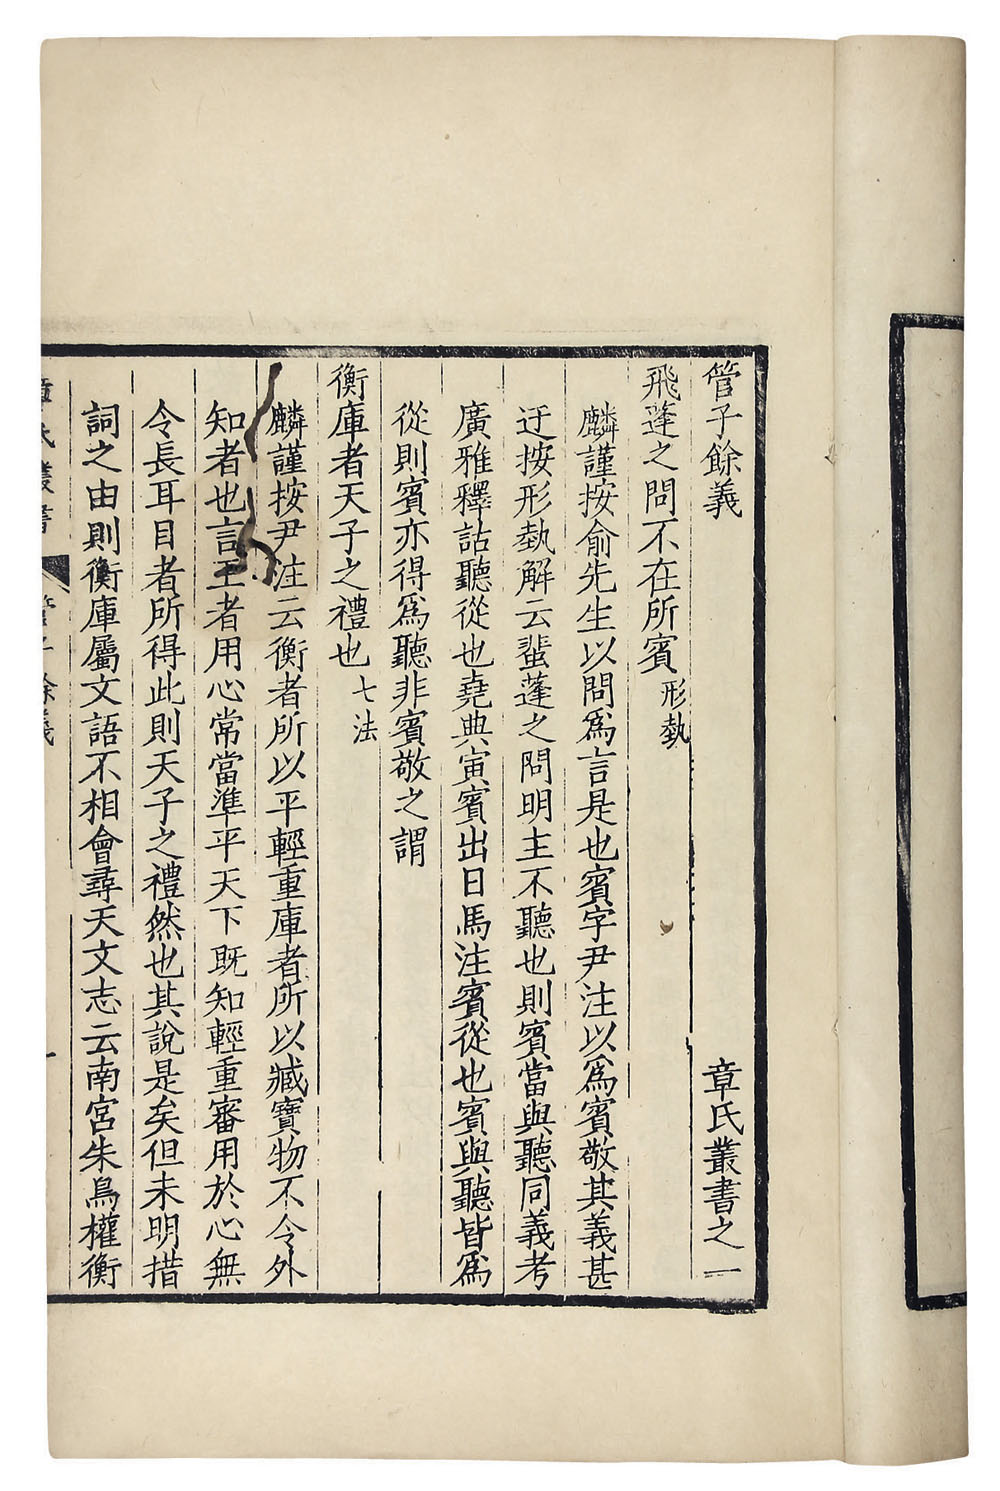 管子餘義 章氏叢書之一
飛蓬之問不在所賓 形埶
麟謹按俞先生以問爲言是也賓字尹注以爲賓敬其義甚
迂按形埶解云蜚蓬之問明主不聽也則賓當與聽同義考
廣雅釋詁聽從也堯典寅賓出日馬注賓從也賓與聽皆爲
從則賓亦得爲聽非賓敬之謂
衡庫者天子之禮也 七法
麟謹按尹注云衡者所以平輕重庫者所以臧寶物不令外
知者也言王者用心常當準平天下既知輕重審用於心無
令長耳目者所得此則天子之禮然也其說是矣但未明措
詞之由則衡庫屬文語不相會尋天文志云南宮朱鳥權衡
章氏叢書 管子餘義 一